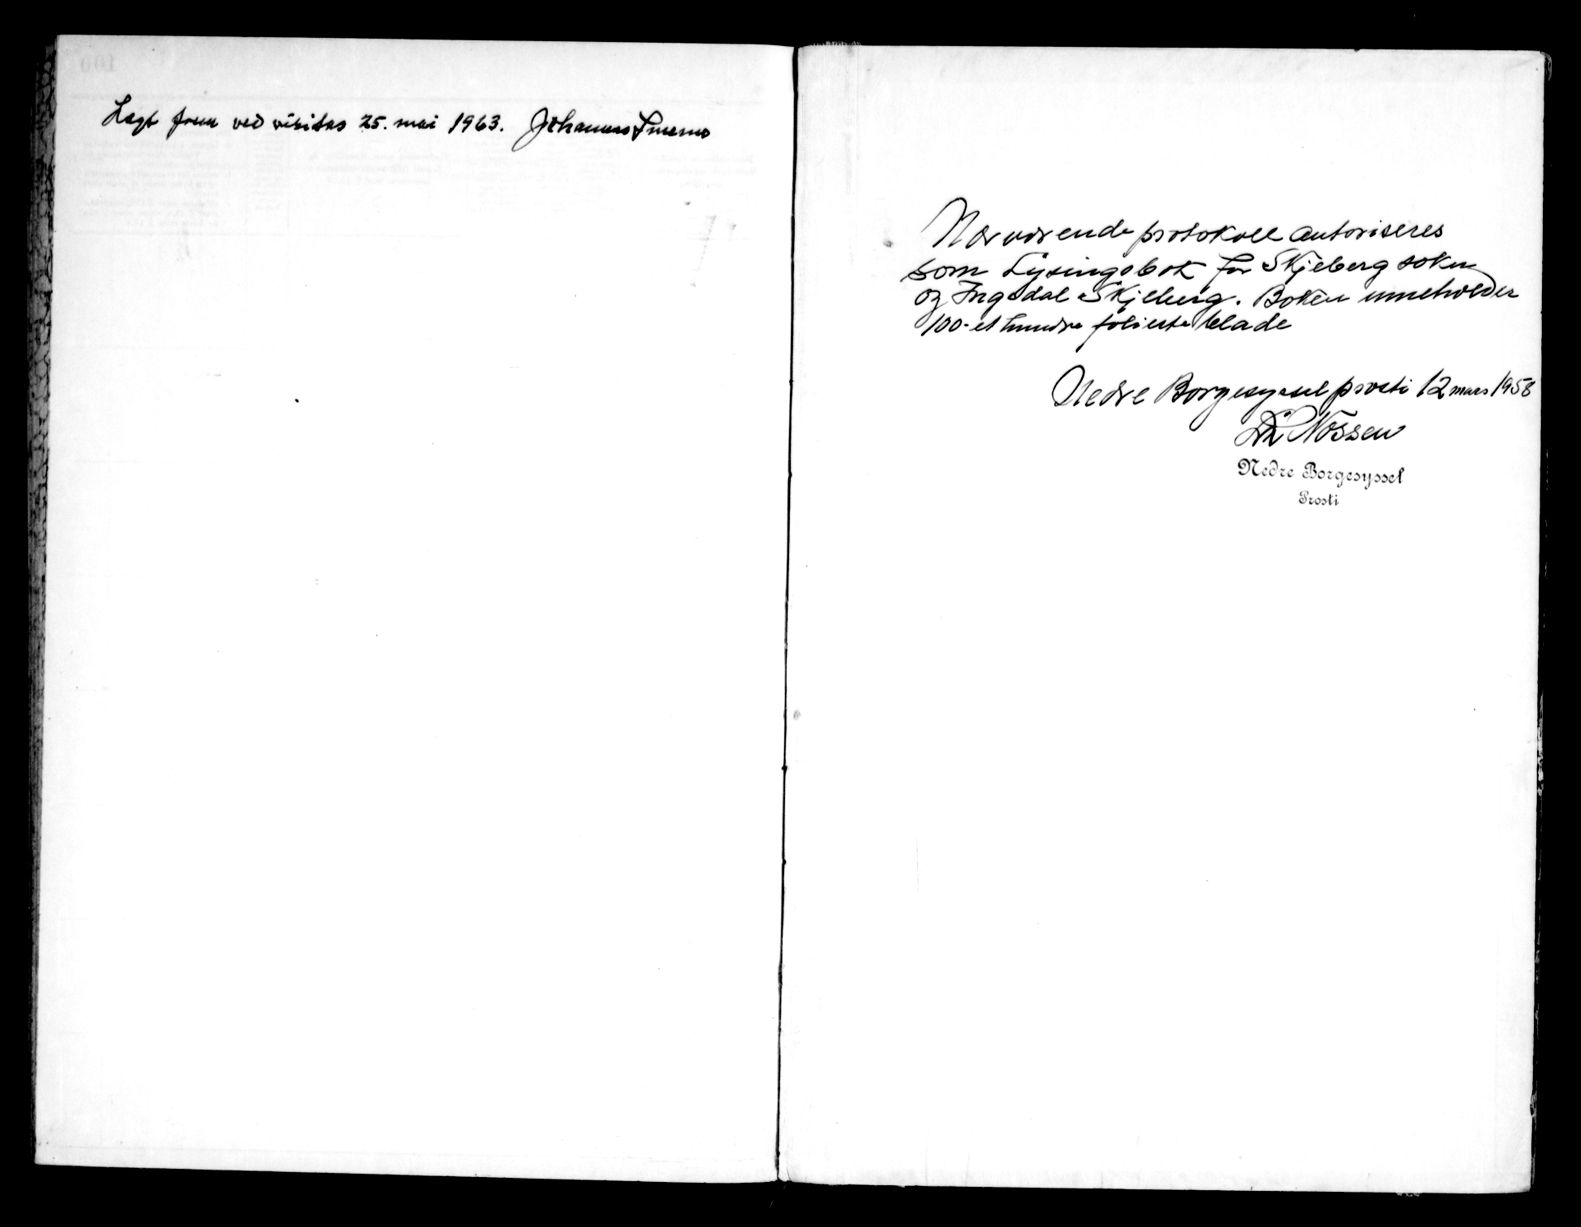 Lagt frem ved visitas 25. mai 1963. Johannes Smemo
Nærværende protokoll autoriseres
som Lysingsbok for Skjeberg sokn
og Ingedal Skjeberg. Boken inneholder
100- et hundre folierte blade
Nedre Borgesyssel prosti 12 mars 1958
Nossen
Nedre Borgesyssel
Prosti